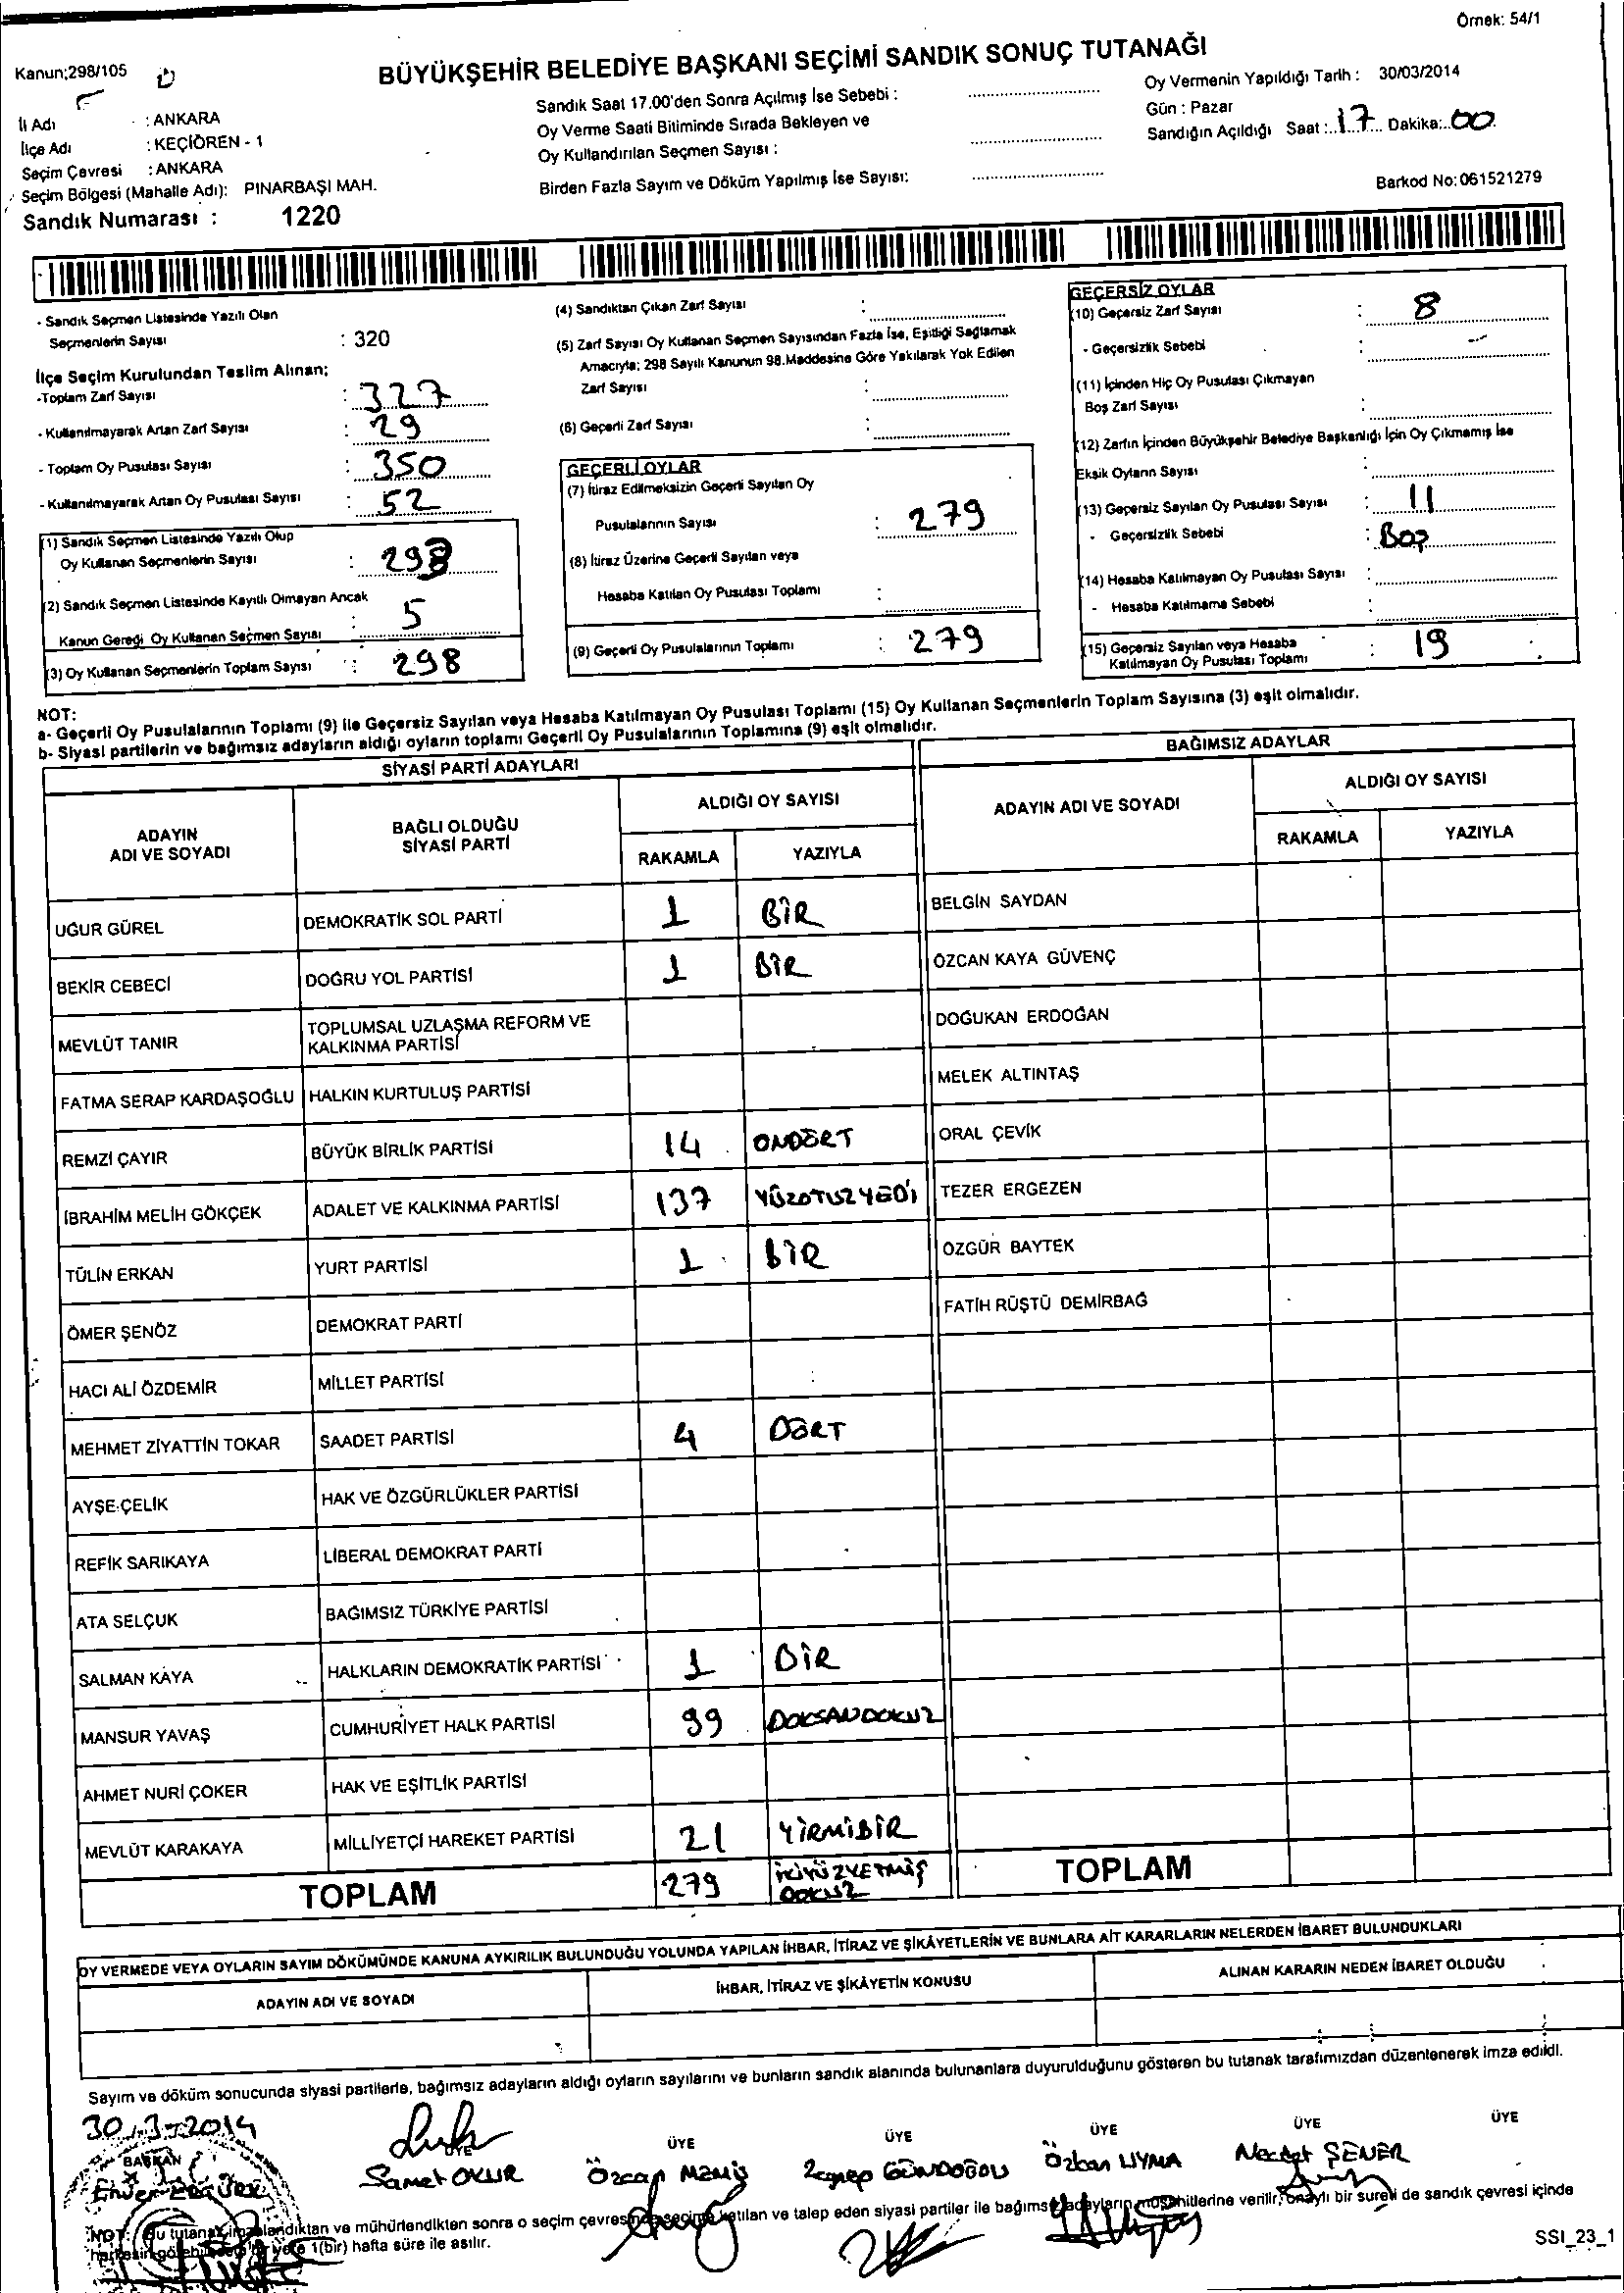 Örnek: 54/1
Kanun;298/105
BÜYÜKŞEHİR BELEDİYE BAŞKANI SEÇİMİ SANDIK SONUÇ TUTANAĞI
İli Adı : ANKARA
İlçe Adı : KEÇİÖREN - 1
Seçim Çevresi : ANKARA
Seçim Bölgesi (Mahalle Adı): PINARBAŞI MAH.
Sandık Numarası : 1220
Sandık Saat 17.00'den Sonra Açılmış İse Sebebi :
Oy Verme Saati Bitiminde Sırada Bekleyen ve
Oy Kullandırılan Seçmen Sayısı :
Birden Fazla Sayım ve Döküm Yapılmış İse Sayısı:
Oy Vermenin Yapıldığı Tarih : 30/03/2014
Gün : Pazar
Sandığın Açıldığı Saat : 17 Dakika: 00
Barkod No: 061521279
- Sandık Seçmen Listesinde Yazılı Olan
Seçmenlerin Sayısı : 320
İlçe Seçim Kurulundan Teslim Alınan;
-Toplam Zarf Sayısı : 327
- Kullanılmayarak Artan Zarf Sayısı : 29
- Toplam Oy Pusulası Sayısı : 350
- Kullanılmayarak Artan Oy Pusulası Sayısı : 52
(1) Sandık Seçmen Listesinde Yazılı Olup
Oy Kullanan Seçmenlerin Sayısı :
(2) Sandık Seçmen Listesinde Kayıtlı Olmayan Ancak
Kanun Gereği Oy Kullanan Seçmen Sayısı : 5
(3) Oy Kullanan Seçmenlerin Toplam Sayısı : 298
(4) Sandıktan Çıkan Zarf Sayısı :
(5) Zarf Sayısı Oy Kullanan Seçmen Sayısından Fazla İse, Eşitliği Sağlamak
Amacıyla; 298 Sayılı Kanunun 98.Maddesine Göre Yakılarak Yok Edilen
Zarf Sayısı :
(6) Geçerli Zarf Sayısı :
GEÇERLİ OYLAR
(7) İtiraz Edilmeksizin Geçerli Sayılan Oy
Pusulalarının Sayısı : 279
(8) İtiraz Üzerine Geçerli Sayılan veya
Hesaba Katılan Oy Pusulası Toplamı :
(9) Geçerli Oy Pusulalarının Toplamı : 279
GEÇERSİZ OYLAR
(10) Geçersiz Zarf Sayısı : 8
- Geçersizlik Sebebi :
(11) İçinden Hiç Oy Pusulası Çıkmayan
Boş Zarf Sayısı :
(12) Zarfın İçinden Büyükşehir Belediye Başkanlığı İçin Oy Çıkmamış İse
Eksik Oyların Sayısı :
(13) Geçersiz Sayılan Oy Pusulası Sayısı : 11
- Geçersizlik Sebebi : Boş
(14) Hesaba Katılmayan Oy Pusulası Sayısı :
- Hesaba Katılmama Sebebi :
(15) Geçersiz Sayılan veya Hesaba
Katılmayan Oy Pusulası Toplamı : 19
NOT:
a- Geçerli Oy Pusulalarının Toplamı (9) ile Geçersiz Sayılan veya Hesaba Katılmayan Oy Pusulası Toplamı (15) Oy Kullanan Seçmenlerin Toplam Sayısına (3) eşit olmalıdır.
b- Siyasi partilerin ve bağımsız adayların aldığı oyların toplamı Geçerli Oy Pusulalarının Toplamına (9) eşit olmalıdır.
SİYASİ PARTİ ADAYLARI
ADAYIN ADI VE SOYADI
BAĞLI OLDUĞU SİYASİ PARTİ
ALDIĞI OY SAYISI
RAKAMLA YAZIYLA
UĞUR GÜREL DEMOKRATİK SOL PARTİ 1 BİR
BEKİR CEBECİ DOĞRU YOL PARTİSİ 1 BİR
MEVLÜT TANIR TOPLUMSAL UZLAŞMA REFORM VE KALKINMA PARTİSİ
FATMA SERAP KARDAŞOĞLU HALKIN KURTULUŞ PARTİSİ
REMZİ ÇAYIR BÜYÜK BİRLİK PARTİSİ 14 ONDÖRT
İBRAHİM MELİH GÖKÇEK ADALET VE KALKINMA PARTİSİ 137 YÜZOTUZYEDİ
TÜLİN ERKAN YURT PARTİSİ 1 BİR
ÖMER ŞENÖZ DEMOKRAT PARTİ
HACI ALİ ÖZDEMİR MİLLET PARTİSİ
MEHMET ZİYATTİN TOKAR SAADET PARTİSİ 4 DÖRT
AYŞE ÇELİK HAK VE ÖZGÜRLÜKLER PARTİSİ
REFİK SARIKAYA LİBERAL DEMOKRAT PARTİ
ATA SELÇUK BAĞIMSIZ TÜRKİYE PARTİSİ
SALMAN KAYA HALKLARIN DEMOKRATİK PARTİSİ 1 BİR
MANSUR YAVAŞ CUMHURİYET HALK PARTİSİ 99 DOKSANDOKUZ
AHMET NURİ ÇOKER HAK VE EŞİTLİK PARTİSİ
MEVLÜT KARAKAYA MİLLİYETÇİ HAREKET PARTİSİ 21 YİRMİBİR
TOPLAM 279 İKİYÜZYETMİŞ DOKUZ
BAĞIMSIZ ADAYLAR
ADAYIN ADI VE SOYADI
ALDIĞI OY SAYISI
RAKAMLA YAZIYLA
BELGİN SAYDAN
ÖZCAN KAYA GÜVENÇ
DOĞUKAN ERDOĞAN
MELEK ALTINTAŞ
ORAL ÇEVİK
TEZER ERGEZEN
ÖZGÜR BAYTEK
FATİH RÜŞTÜ DEMİRBAĞ
TOPLAM
OY VERMEDE VEYA OYLARIN SAYIM DÖKÜMÜNDE KANUNA AYKIRILIK BULUNDUĞU YOLUNDA YAPILAN İHBAR, İTİRAZ VE ŞİKÂYETLERİN VE BUNLARA AİT KARARLARIN NELERDEN İBARET BULUNDUKLARI
ADAYIN ADI VE SOYADI
İHBAR, İTİRAZ VE ŞİKÂYETİN KONUSU
ALINAN KARARIN NEDEN İBARET OLDUĞU
Sayım ve döküm sonucunda siyasi partilerle, bağımsız adayların aldığı oyların sayılarını ve bunların sandık alanında bulunanlara duyurulduğunu gösteren bu tutanak tarafımızdan düzenlenerek imza edildi.
30.3.2014
BAŞKAN ÜYE ÜYE ÜYE ÜYE ÜYE ÜYE
Samet OKUR Özcan MEMİŞ Zeynep GÜNDOĞDU Özkan UYMA Necdet ŞENER
NOT: Bu tutanak imzalandıktan ve mühürlendikten sonra o seçim çevresinde seçime katılan ve talep eden siyasi partiler ile bağımsız adayların müşahitlerine verilir, onaylı bir sureti de sandık çevresi içinde
herkesin görebileceği bir yere 1(bir) hafta süre ile asılır.
SSI_23_1